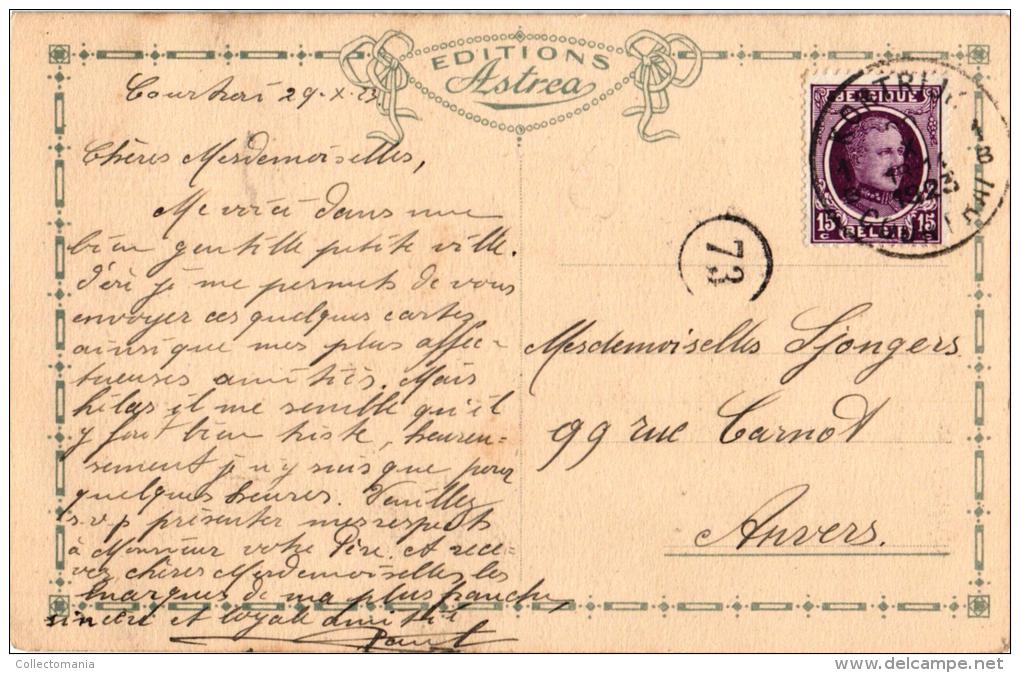 EDITIONS
Astrea
Courtrai 29-X-23
Chères Mesdemoiselles,
Me voici dans une
bien gentille petite ville.
D'ici je me permets de vous
envoyer ces quelques cartes
ainsi que mes plus affec-
tueuses amitiés. Mais
hélas il me semble qu'il
y fait bien triste, heureu-
sement je n'y suis que pour
quelques heures. Veuillez
s.v.p présenter mes respects
à Monsieur votre Père. et rece-
vez chères Mesdemoiselles les
marques de ma plus franche,
sincère et loyale amitié
BELGIQUE
15 c 15 c
BELGIË
KORTRIJK 1B
1923
COURTRAI
73
Mesdemoiselles Sjongers
99 rue Carnot
Anvers.
Collectomania
delcampe.net